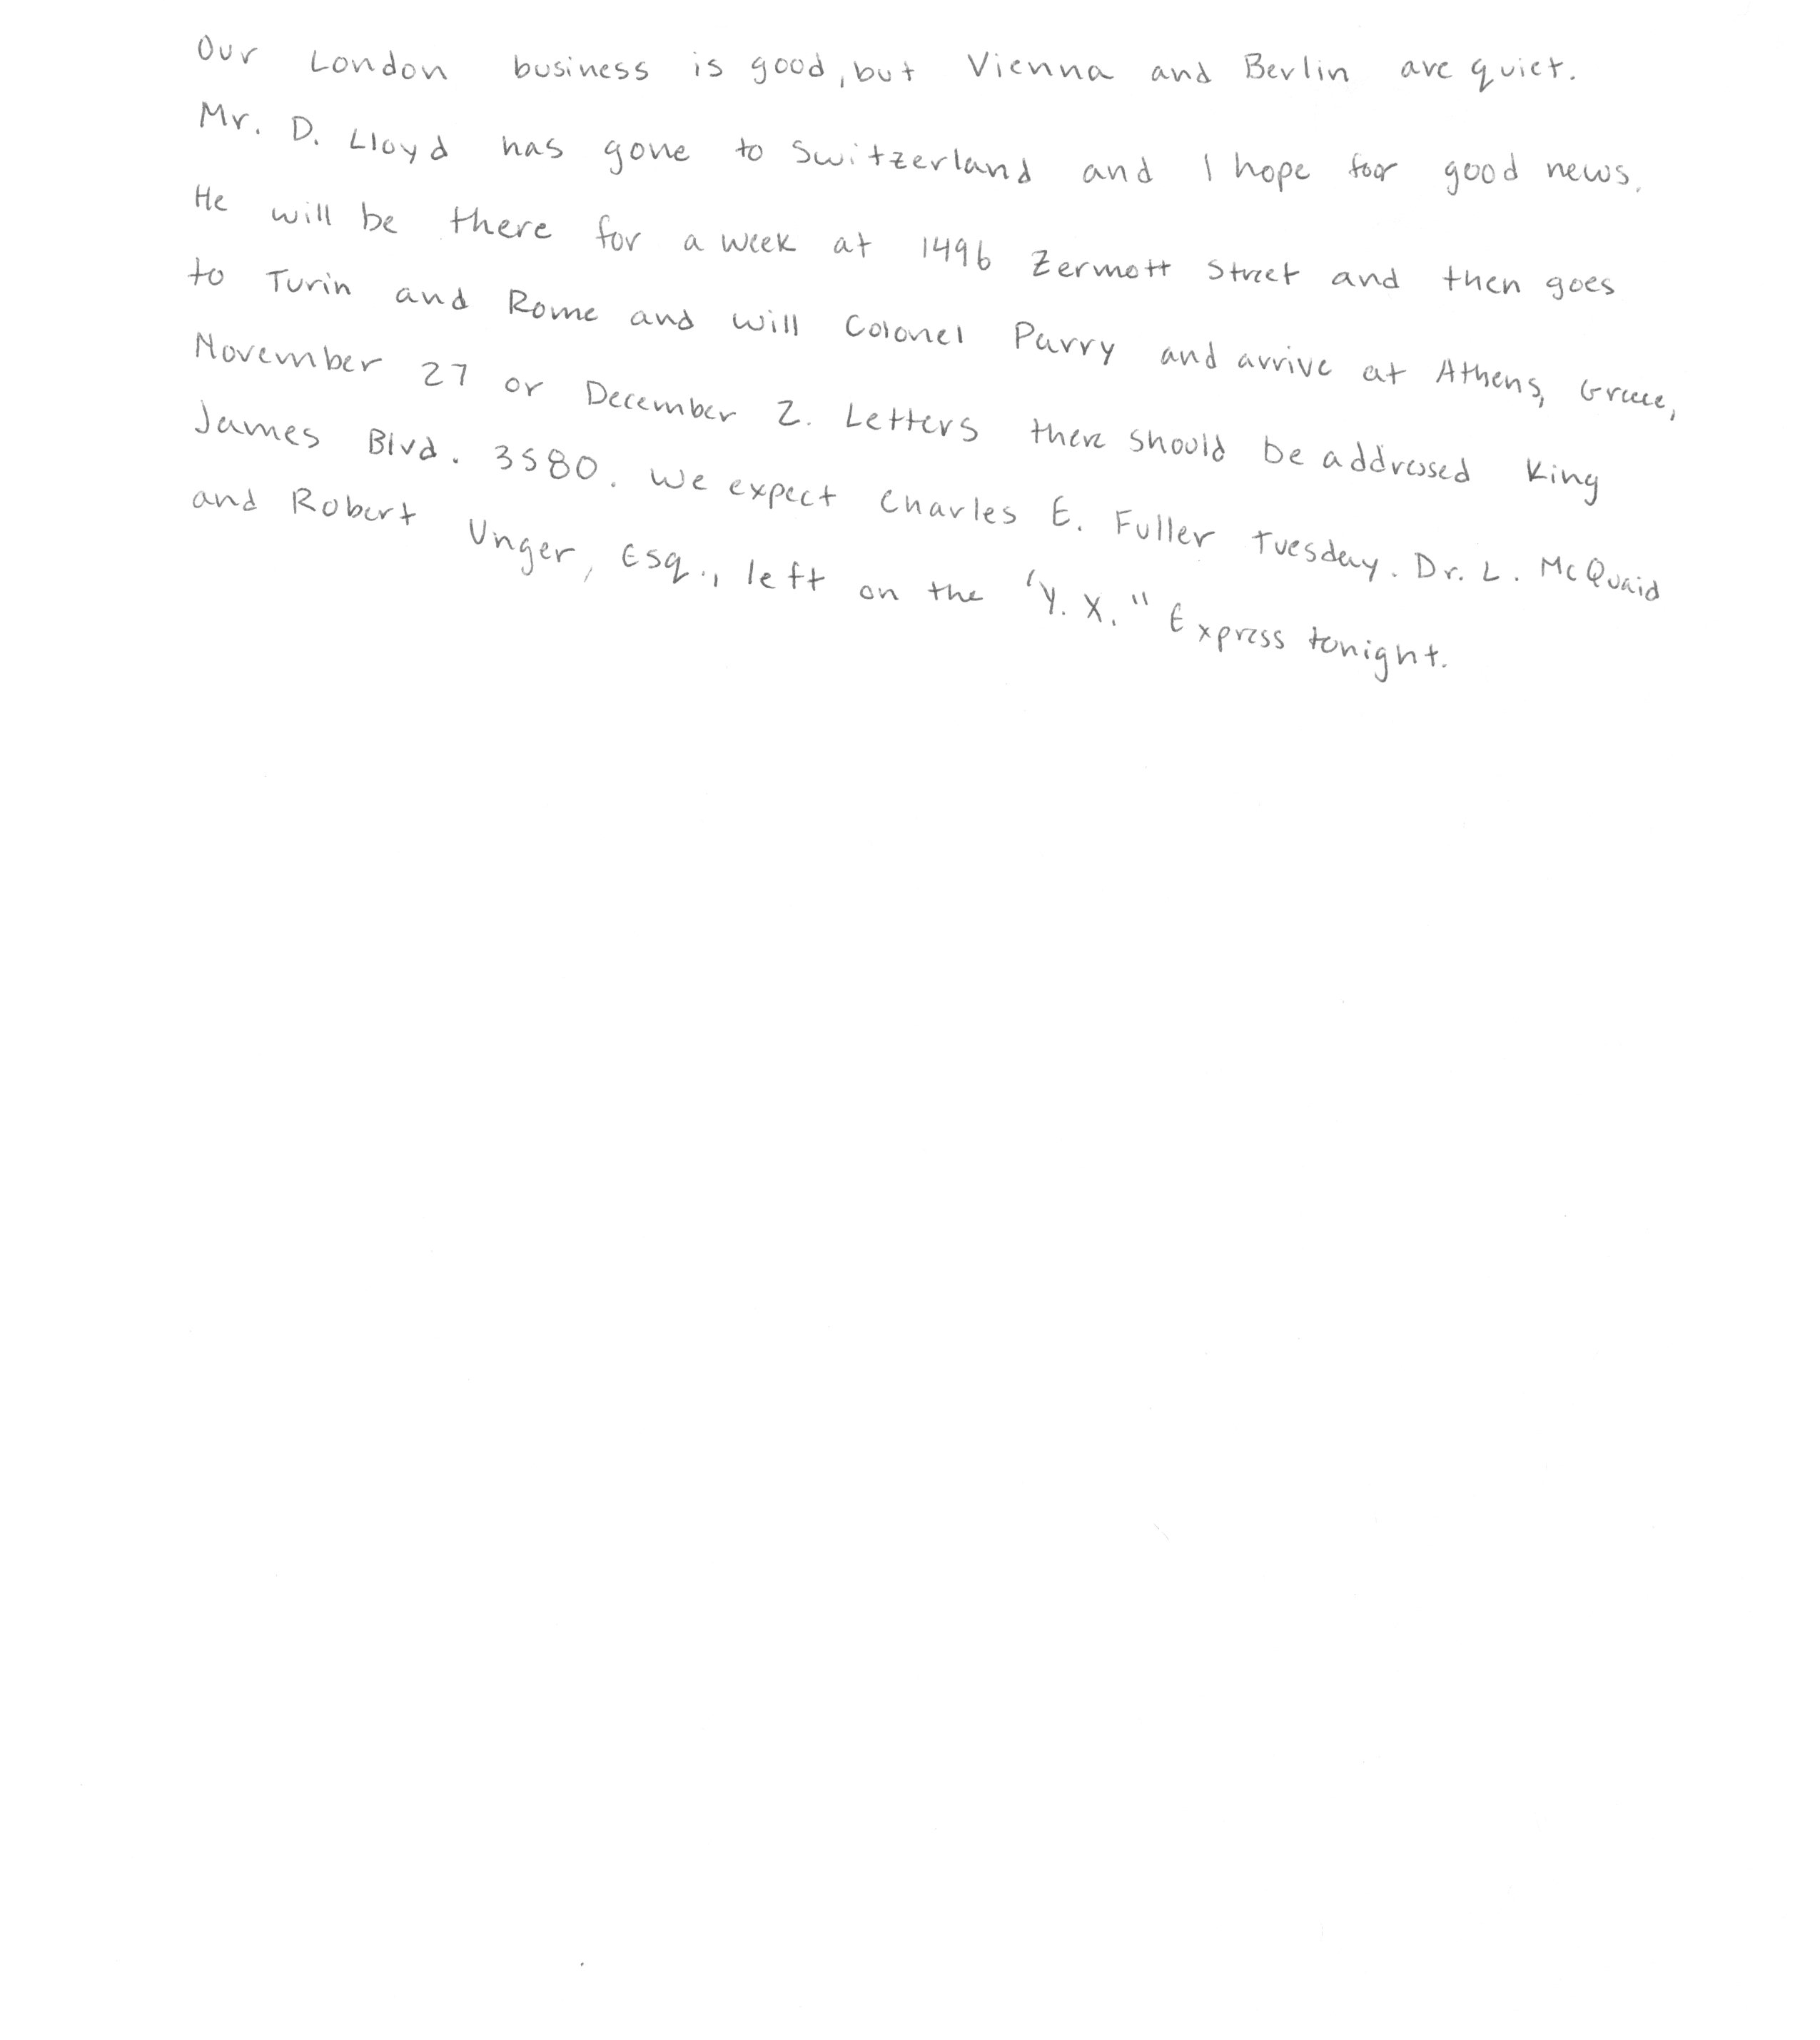 Our London business is good, but Vienna and Berlin are quiet.
Mr. D. Lloyd has gone to Switzerland and I hope for good news.
He will be there for a week at 1496 Zermott Street and then goes
to Turin and Rome and will Colonel Parry and arrive at Athens, Greece,
November 27 or December 2. Letters there should be addressed King
James Blvd. 3580. We expect Charles E. Fuller Tuesday. Dr. L. McQuaid
and Robert Unger, Esq., left on the "Y. X." Express tonight.